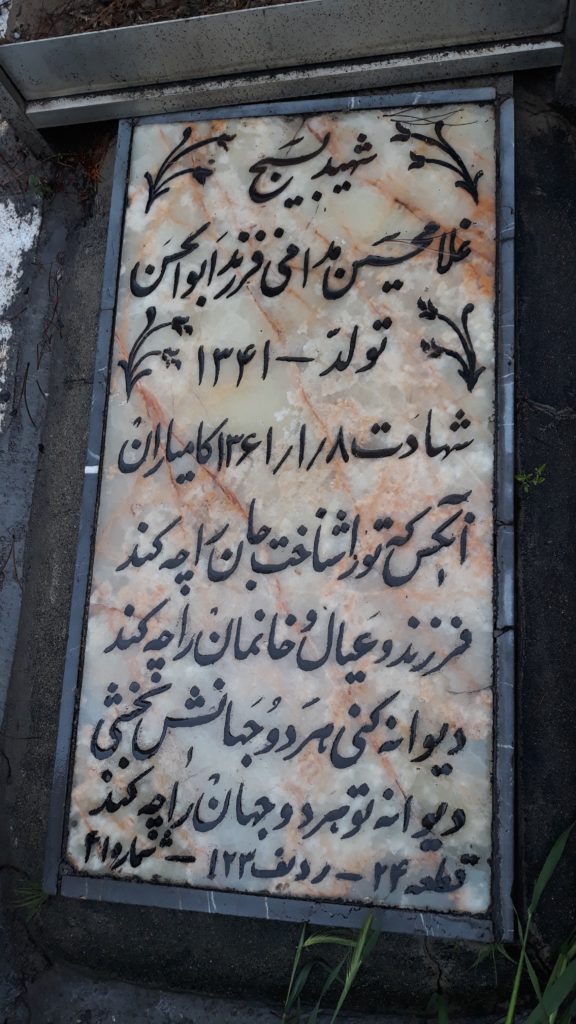 شهید بسیج
غلامحسین مدامی فرزند ابوالحسن
تولد - ۱۳۴۱
شهادت ۸ر۱ر۱۳۶۱ کامیاران
آنکس که تو را شناخت جان را چه کند
فرزند و عیال و خانمان را چه کند
دیوانه کنی هر دو جهانش بخشی
دیوانه تو هر دو جهان را چه کند
قطعه ۲۴ - ردیف ۱۲۳ - شماره ۴۱